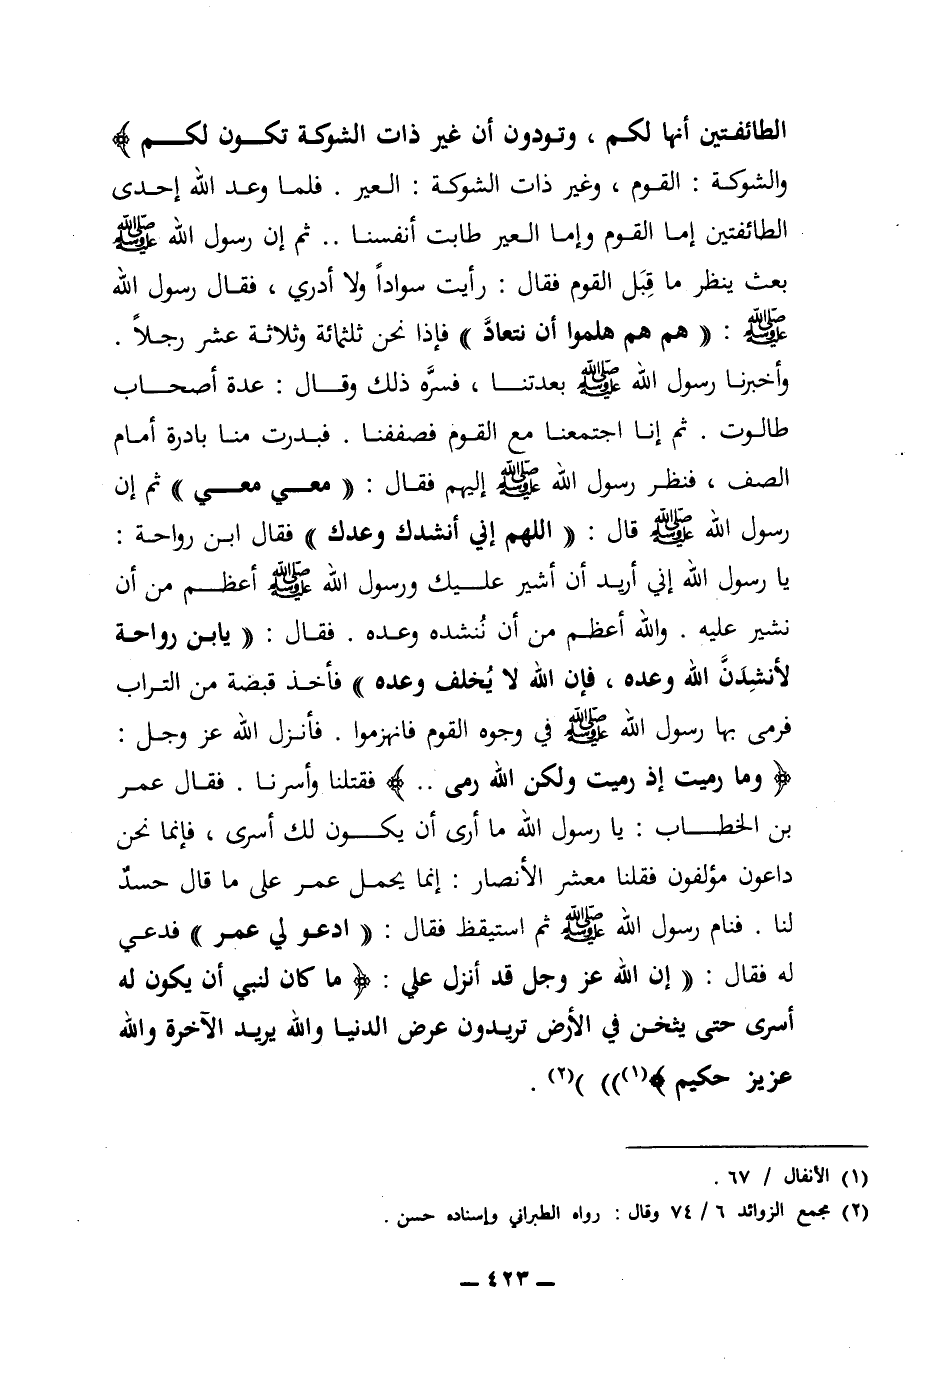 الطائفتين أنها لكم ، وتودون أن غير ذات الشوكة تكون لكم ﴾
والشوكة : القوم ، وغير ذات الشوكة : العير . فلما وعد الله إحدى
الطائفتين إما القوم وإما العير طابت أنفسنا .. ثم إن رسول الله ﷺ
بعث ينظر ما قِبَل القوم فقال : رأيت سواداً ولا أدري ، فقال رسول الله
ﷺ : « هم هم هلموا أن نتعادَّ » فإذا نحن ثلثمائة وثلاثة عشر رجلاً .
وأخبرنا رسول الله ﷺ بعدتنا ، فسرَّه ذلك وقال : عدة أصحاب
طالوت . ثم إنا اجتمعنا مع القوم فصففنا . فبدرت منا بادرة أمام
الصف ، فنظر رسول الله ﷺ إليهم فقال : « معي معي » ثم إن
رسول الله ﷺ قال : « اللهم إني أنشدك وعدك » فقال ابن رواحة :
يا رسول الله إني أريد أن أشير عليك ورسول الله ﷺ أعظم من أن
نشير عليه . والله أعظم من أن نُنشده وعده . فقال : « يابن رواحة
لأنشِدَنَّ الله وعده ، فإن الله لا يُخلف وعده » فأخذ قبضة من التراب
فرمى بها رسول الله ﷺ في وجوه القوم فانهزموا . فأنزل الله عز وجل :
﴿ وما رميت إذ رميت ولكن الله رمى .. ﴾ فقتلنا وأسرنا . فقال عمر
بن الخطاب : يا رسول الله ما أرى أن يكون لك أسرى ، فإنما نحن
داعون مؤلفون فقلنا معشر الأنصار : إنما يحمل عمر على ما قال حسدٌ
لنا . فنام رسول الله ﷺ ثم استيقظ فقال : « ادعو لي عمر » فدعي
له فقال : « إن الله عز وجل قد أنزل علي : ﴿ ما كان لنبي أن يكون له
أسرى حتى يثخن في الأرض تريدون عرض الدنيا والله يريد الآخرة والله
عزيز حكيم ﴾(١)» )(٢) .
(١) الأنفال / ٦٧ .
(٢) مجمع الزوائد ٦ / ٧٤ وقال : رواه الطبراني وإسناده حسن .
ـ ٤٢٣ ـ